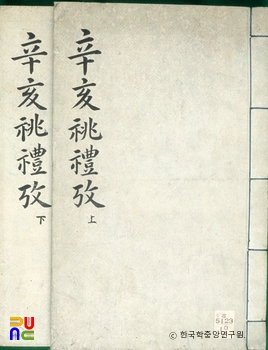 辛亥祧禮攷
上
辛亥祧禮攷
下
PUNC
ⓒ 한국학중앙연구원